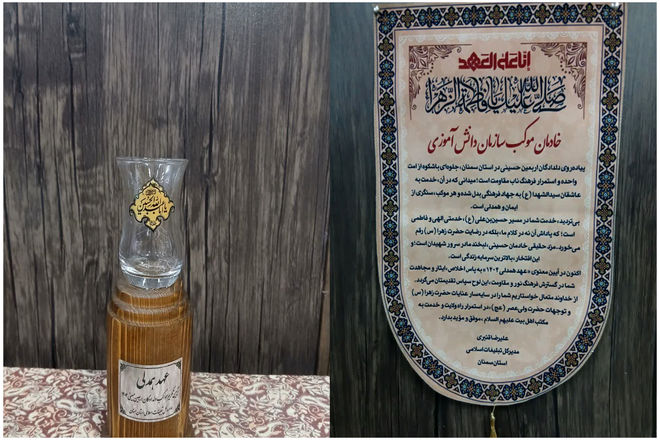 عهد همدلی
اِنّا عَلَی العَهد
صَلَّی اللهُ عَلَیکِ یا فاطِمَةُ الزَّهراء
خادمان موکب سازمان دانش آموزی
پیاده‌روی دلدادگان اربعین حسینی در استان سمنان، جلوه‌ای باشکوه از امت
واحده و استمرار فرهنگ ناب مقاومت است؛ میدانی که در آن، خدمت به
عاشقان سیدالشهدا (ع) به جهاد فرهنگی بدل شده و هر موکب، سنگری از
ایمان و همدلی است.
بی‌تردید، خدمت شما در مسیر حسین‌بن‌علی (ع)، خدمتی الهی و فاطمی
است؛ که پاداش آن نه در کلام ما، بلکه در رضایت حضرت زهرا (س) رقم
می‌خورد. مزد حقیقی خادمان حسینی، لبخند مادر سرور شهیدان است؛ و
این افتخار، بالاترین سرمایه زندگی است.
اکنون در آیین معنوی «عهد همدلی ۱۴۰۴» به پاس اخلاص، ایثار و مجاهدت
شما در گسترش فرهنگ نور و مقاومت، این لوح سپاس تقدیمتان می‌گردد.
از خداوند متعال خواستاریم شما را در سایه‌سار عنایات حضرت زهرا (س)
و توجهات حضرت ولی‌عصر (عج)، در استمرار راه ولایت و خدمت به
مکتب اهل بیت علیهم السلام، موفق و مؤید بدارد.
علیرضا قنبری
مدیر کل تبلیغات اسلامی
استان سمنان